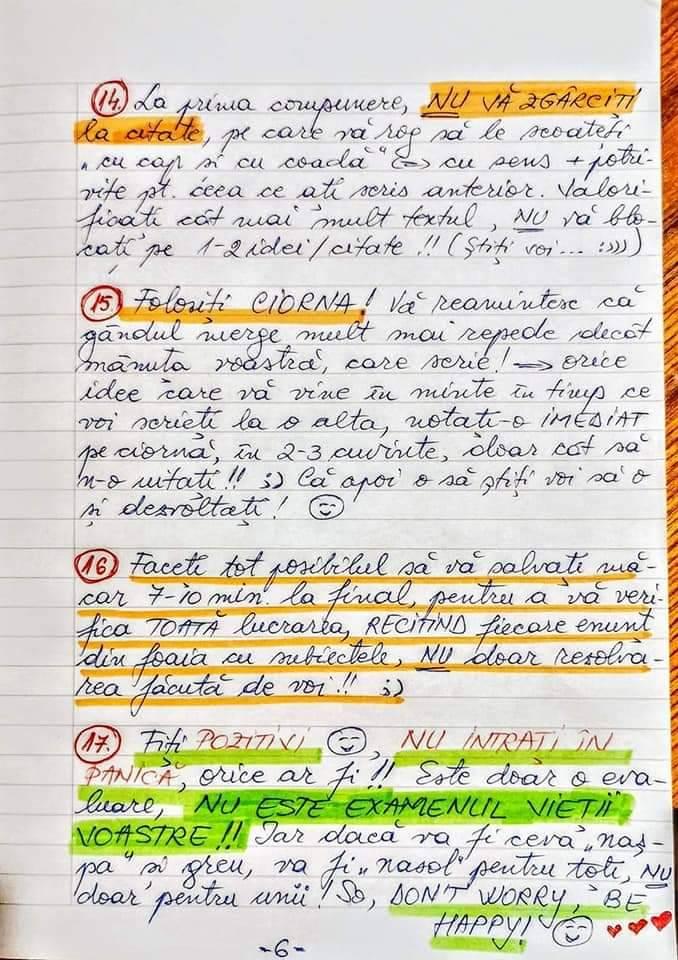 14. La prima compunere, NU VĂ ZGÂRCIȚI
la citate, pe care vă rog să le scoateți
"cu cap și cu coadă" => cu sens + potri-
vite pt. ceea ce ați scris anterior. Valori-
ficați cât mai mult textul, NU vă blo-
cați pe 1-2 idei/citate!! (Știți voi... :)))
15. Folosiți CIORNA! Vă reamintesc că
gândul merge mult mai repede decât
mânuța voastră, care scrie! => orice
idee care vă vine în minte în timp ce
voi scrieți la o alta, notați-o IMEDIAT
pe ciornă, în 2-3 cuvinte, doar cât să
n-o uitați!! ;) Că apoi o să știți voi să o
și dezvoltați! ☺
16 Faceți tot posibilul să vă salvați mă-
car 7-10 min. la final, pentru a vă veri-
fica TOATĂ lucrarea, RECITIND fiecare enunț
din foaia cu subiectele, NU doar rezolva-
rea făcută de voi!! ;)
17. Fiți POZITIVI ☺, NU INTRAȚI ÎN
PANICĂ, orice ar fi!! Este doar o eva-
luare, NU ESTE EXAMENUL VIEȚII
VOASTRE!! Iar dacă va fi ceva „naș-
pa" și greu, va fi „nasol" pentru toți, NU
doar pentru unii! So, DON'T WORRY, BE
HAPPY! ☺ ♥♥♥
-6-